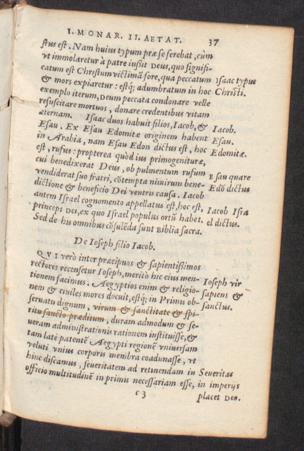 I. MONAR. II. AETAT. 37
stus est. Nam huius typum præ se ferebat, cùm
vt immolaretur à patre iussit Deus, quo signifi-
catum est Christum victimā fore, qua peccatum Isaac typus
& mors expiaretur: estq; adumbratum in hoc Christi.
exemplo iterum, Deum peccata condonare velle
resuscitare mortuos, donare credentibus vitam
æternam. Isaac duos habuit filios, Iacob, & Iacob.
Esau. Ex Esau Edomitæ originem habent Esau.
in Arabia, nam Esau Edon dictus est, hoc Edomitæ.
est, rufus: propterea quòd ius primogenituræ,
cui benedixerat Deus, ob pulmentum rufum Esau quare
vendiderat suo fratri, cōtempta niuirum bene- Edō dictus
dictione & beneficio Dei ventru causa. Iacob
antem Israel cognomento appellatus est, hoc est, Iacob Isra
princeps dei, ex quo Israel populus ortū habet. el dictus.
Sed de his omnibus cōsulēda sunt biblia sacra.
De Ioseph filio Iacob.
QVI verò inter præcipuos & sapientissimos
rectores recensetur Ioseph, meritò hîc eius men- Ioseph vir
tionem facimus. Aegyptios enim & religio- sapiens &
nem & ciuiles mores docuit, estq; in Primu ob- sanctus.
seruatu dignum, virum & sanctitate & spi-
ritu sancto præditum, duram admodum & se-
ueram administrationis rationem instituisse, &
tam latè patentē Aegypti regionē vniuersam
veluti vnius corporis membra coadunasse, vt
hinc discamus, seueritatem ad retinendam in Seueritas
officio multitudinē in primis necessariam esse, in imperijs
c 3 placet Deo.